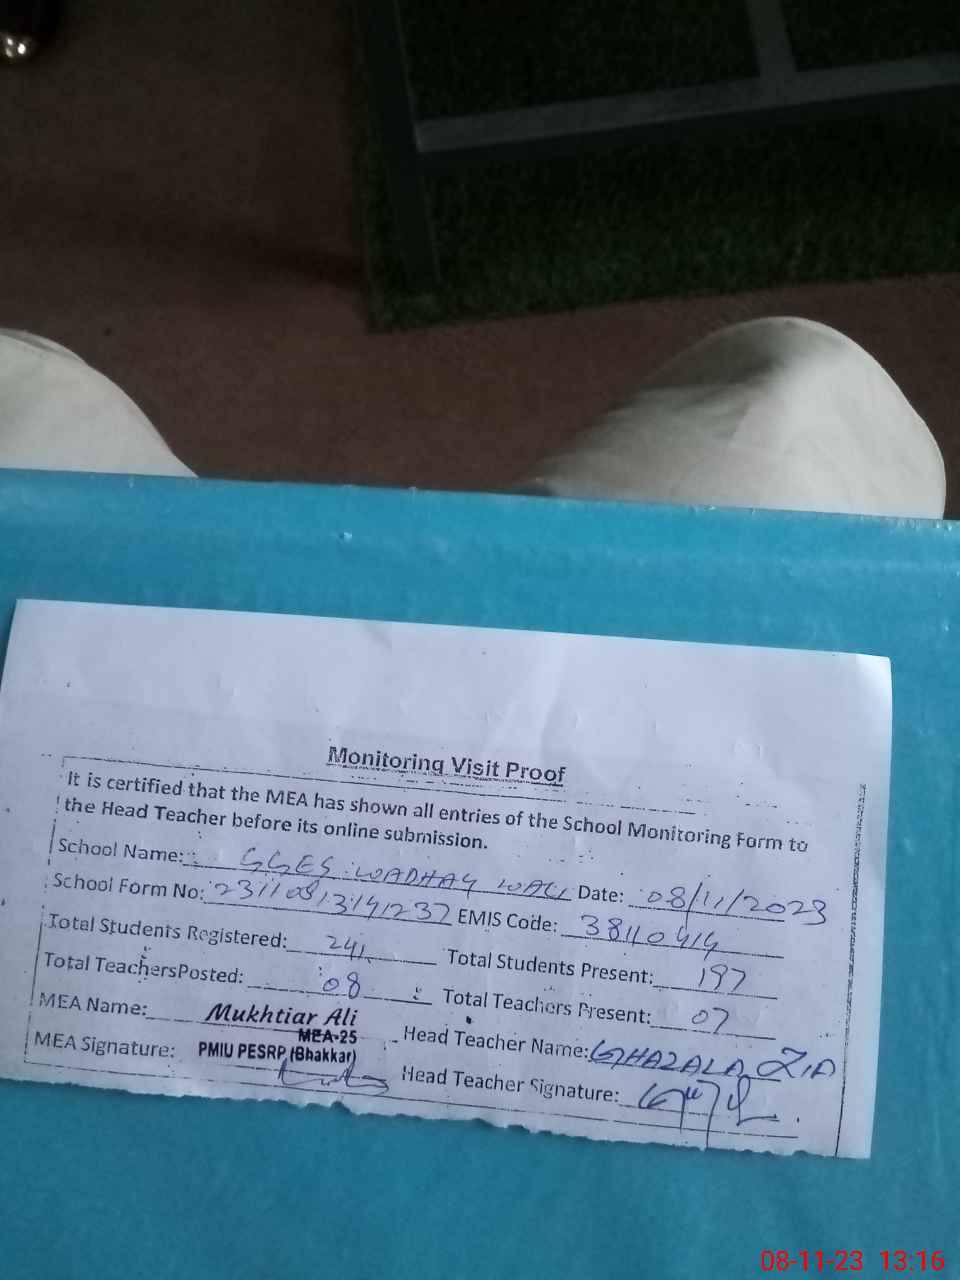 Monitoring Visit Proof
It is certified that the MEA has shown all entries of the School Monitoring Form to
the Head Teacher before its online submission.
School Name: GGES WADHAY WALI Date: 08/11/2023
School Form No: 23110813141237 EMIS Code: 38110414
Total Students Registered: 241 Total Students Present: 197
Total TeachersPosted: 08 Total Teachers Present: 07
MEA Name: Mukhtiar Ali Head Teacher Name: GHAZALA ZIA
MEA-25
MEA Signature: PMIU PESRP (Bhakkar) Head Teacher Signature:
08-11-23 13:16